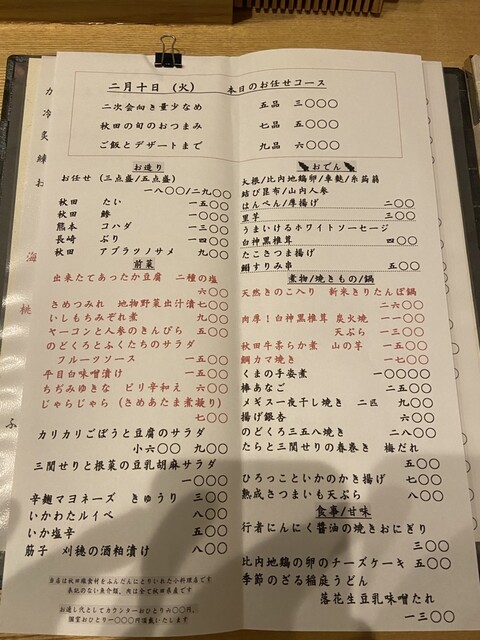 二月十日（火）　本日のお任せコース
二次会向き量少なめ　五品　三〇〇〇
秋田の旬のおつまみ　七品　五〇〇〇
ご飯とデザートまで　九品　六〇〇〇
お造り
お任せ（三点盛/五点盛）
一八〇〇/二九〇〇
秋田　たい　一五〇〇
秋田　鯵　一〇〇〇
熊本　コハダ　一三〇〇
長崎　ぶり　一四〇〇
秋田　アブラツノザメ　一九〇〇
前菜
出来たてあったか豆腐　二種の塩
六〇〇
さめつみれ　地物野菜出汁漬　七〇〇
いしもちみぞれ煮　九〇〇
ヤーコンと人参のきんぴら　五〇〇
のどくろとふくたちのサラダ
フルーツソース　一五〇〇
平目白味噌漬け　一五〇〇
ちぢみゆきな　ピリ辛和え　六〇〇
じゃらじゃら（さめあたま煮凝り）
七〇〇
カリカリごぼうと豆腐のサラダ
小六〇〇　九〇〇
三関せりと根菜の豆乳胡麻サラダ
一〇〇〇
辛麹マヨネーズ　きゅうり　三〇〇
いかわたルイベ　八〇〇
いか塩辛　五〇〇
筋子　刈穂の酒粕漬け　八〇〇
当店は秋田県食材をふんだんにとりいれた小料理店です
表記のない魚介類、肉は全て秋田県産です
お通し代としてカウンターおひとり四〇〇円、
個室おひとり一〇〇〇円頂戴いたします
おでん
大根/比内地鶏卵/車麩/糸蒟蒻
結び昆布/山内人参
はんぺん/厚揚げ　二〇〇
里芋　三〇〇
うまいけるホワイトソーセージ
白神黒椎茸　四〇〇
たこさつま揚げ
鯛すりみ串　五〇〇
煮物/焼きもの/鍋
天然きのこ入り　新米きりたんぽ鍋
二六〇〇
肉厚！白神黒椎茸　炭火焼　一一〇〇
天ぷら　一三〇〇
秋田牛柔らか煮　山の芋　一五〇〇
鯛カマ焼き　一七〇〇
くまの手姿煮　一〇〇〇〇
棒あなご　二五〇〇
メギス一夜干し焼き　二匹　九〇〇
揚げ銀杏　六〇〇
のどくろ三五八焼き　二八〇〇
たらと三関せりの春巻き　梅だれ
五〇〇
ひろっこといかのかき揚げ　七〇〇
熟成さつまいも天ぷら　八〇〇
食事/甘味
行者にんにく醤油の焼きおにぎり
三〇〇
比内地鶏の卵のチーズケーキ　五〇〇
季節のざる稲庭うどん
落花生豆乳味噌たれ
一三〇〇
海
桃
ふ
カ
冷
炙
練
お